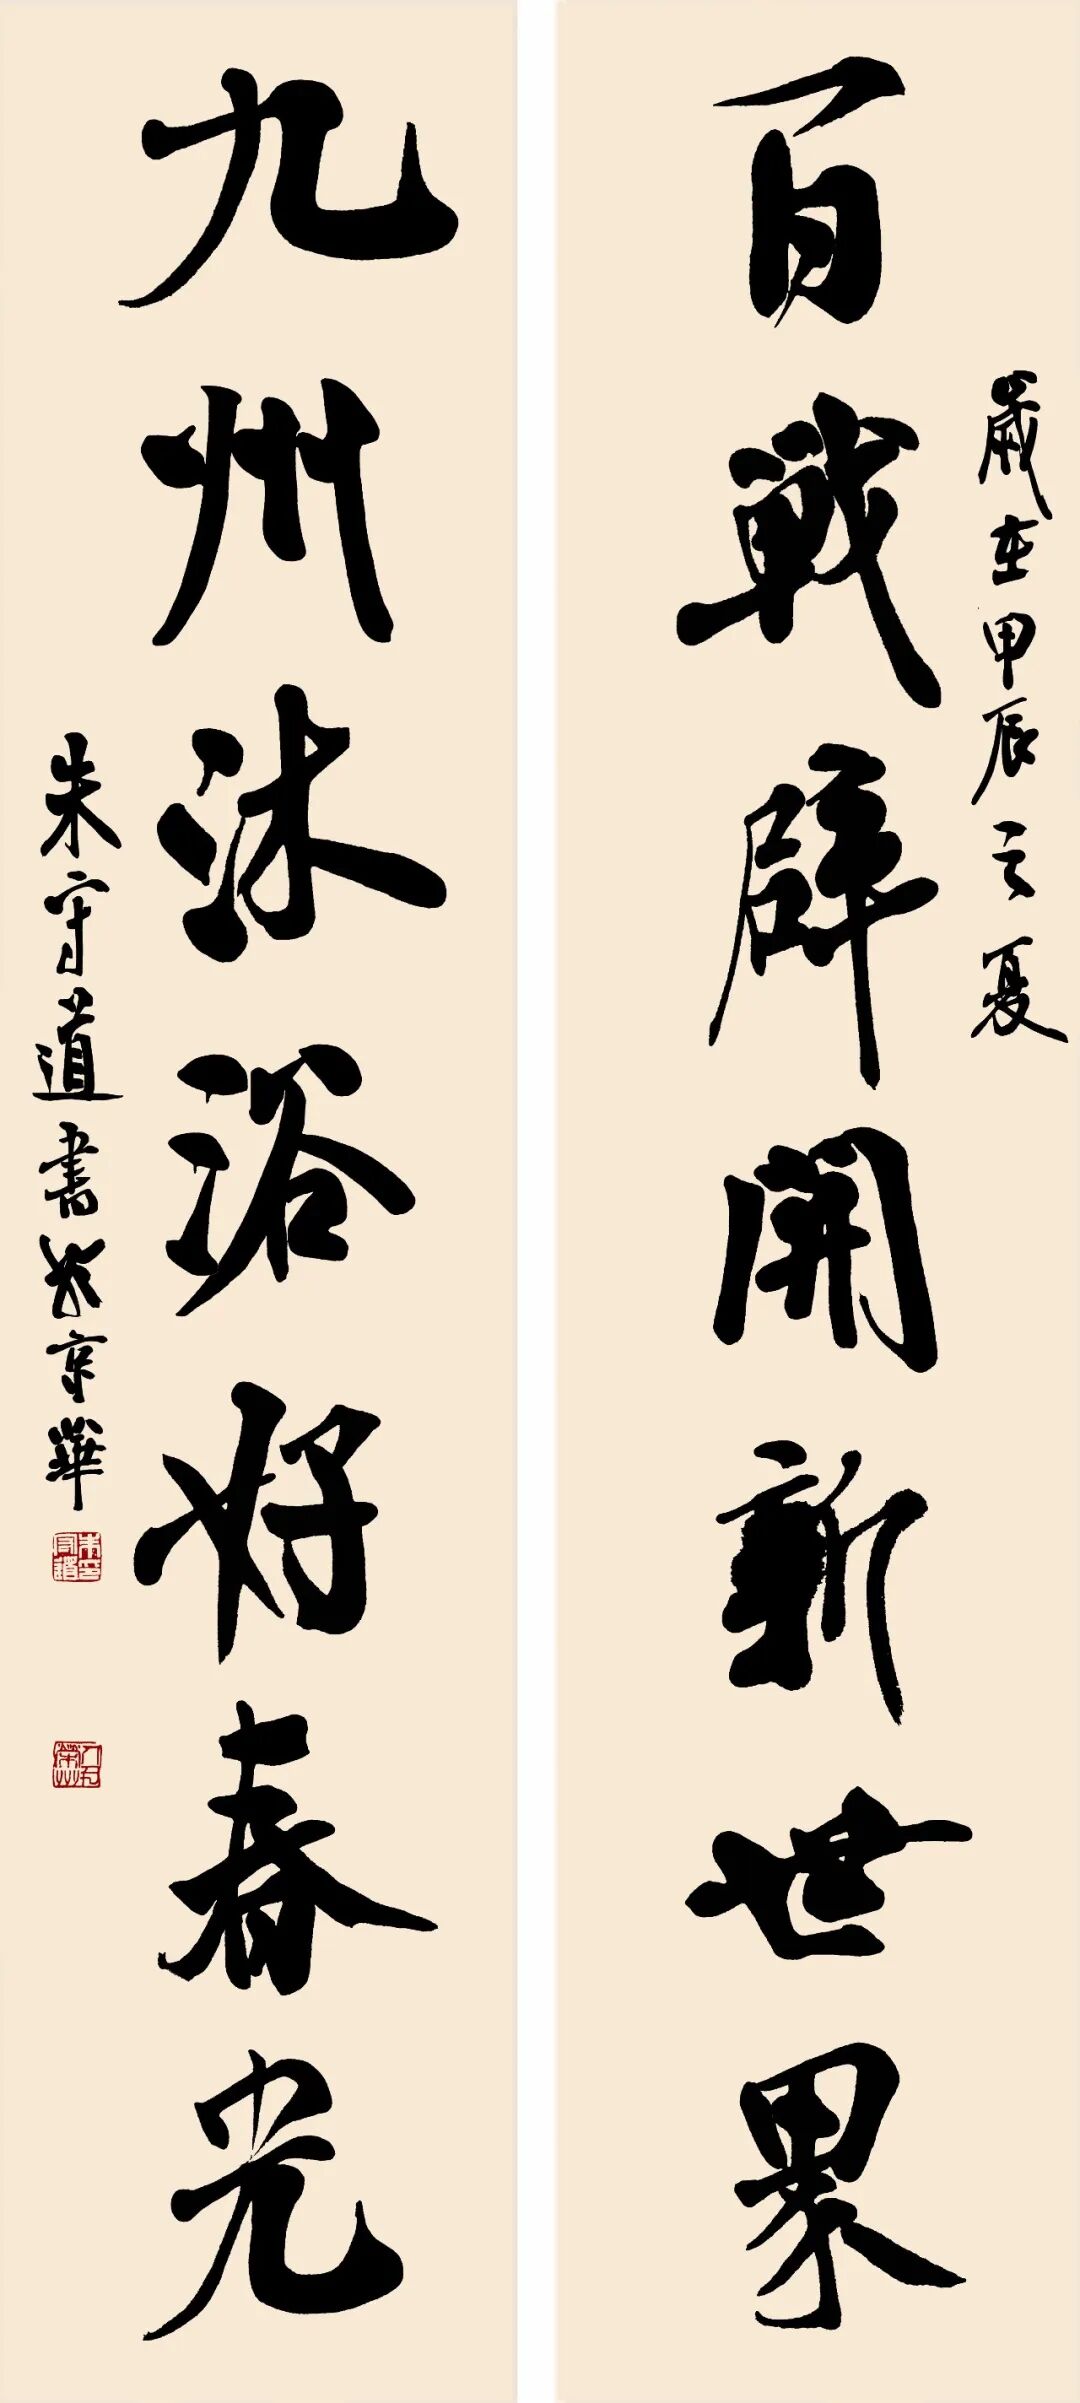 百戰辟開新世界
歲在甲辰之夏
九州沐浴好春光
朱守道書於京華